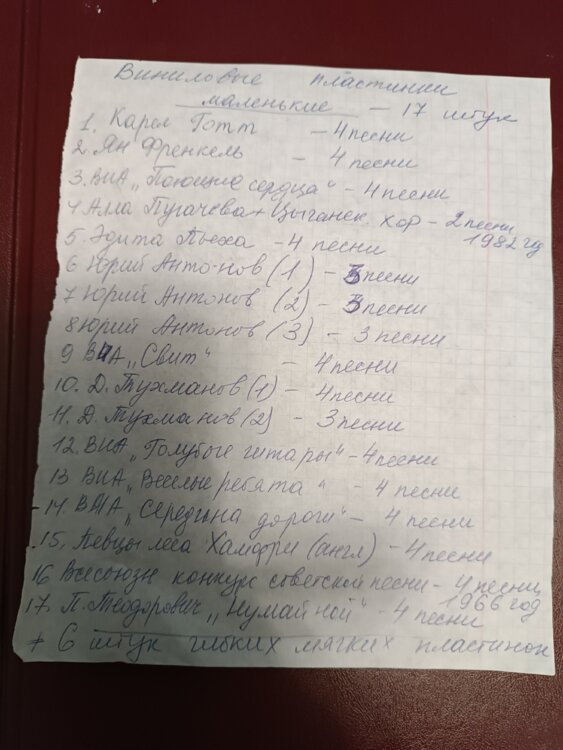 Виниловые пластинки
маленькие — 17 штук
1. Карел Готт — 4 песни
2. Ян Френкель — 4 песни
3. ВИА „Поющие сердца" — 4 песни
4 Алла Пугачева + Цыганск. хор — 2 песни
1982 г
5. Эдита Пьеха — 4 песни
6 Юрий Антонов (1) — 3 песни
7 Юрий Антонов (2) — 3 песни
8 Юрий Антонов (3) — 3 песни
9 ВИА „Свит" — 4 песни
10. Д. Тухманов (1) — 4 песни
11. Д. Тухманов (2) — 3 песни
12. ВИА „Голубые гитары" — 4 песни
13 ВИА „Веселые ребята" — 4 песни
14. ВИА „Середина дороги" — 4 песни
15. Певцы Леса Хамфри (англ) — 4 песни
16 Всесоюзн конкурс советской песни — 4 песни,
1966 год
17. П. Теодорович — 4 песни
+ 6 штук гибких мягких пластинок